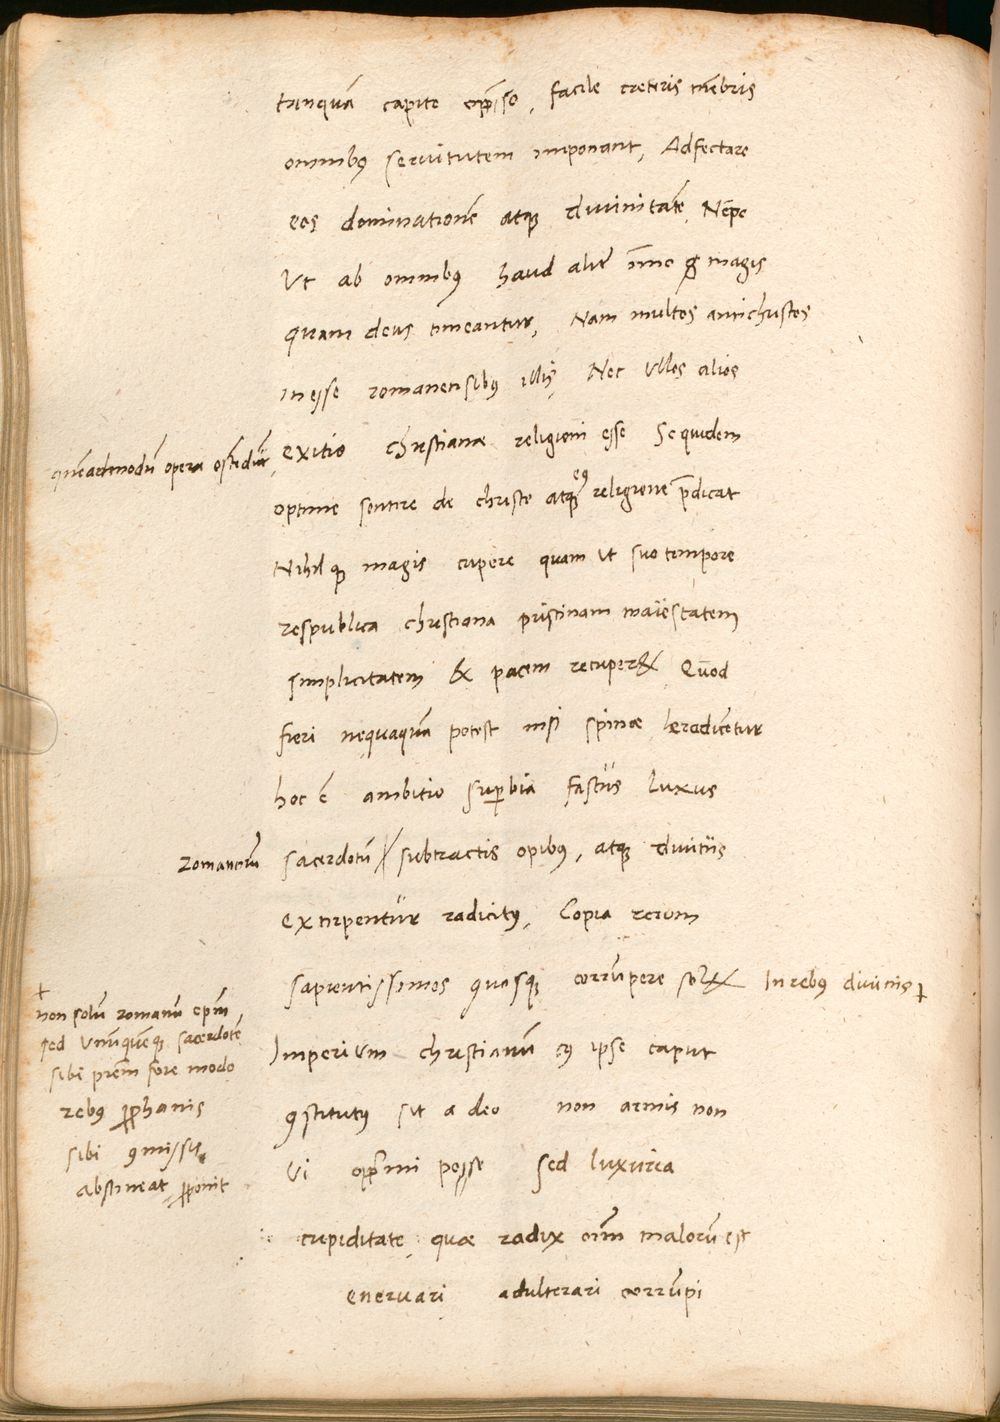 tanquā capite opp̄sso, facile ceteris mēbris
omnibꝰ seruitutem imponant, Adfectare
eos dominationē atqꝫ diuinitatē Nēpe
Ut ab omnibꝰ haud alit̄ īmo magis
quam deus timeantur, Nam multos antichristos
inesse romanensibꝰ illis, Nec Ullos alios
exitio christianæ religioni esse Se quidem
quēadmodū opera ostēdūt,
optime sentire de christo atqꝫ eꝰ religione p̄dicat
Nihil qꝫ magis cupere quam Ut suo tempore
respublica christiana pristinam maiestatem
simplicitatem & pacem recuper& Quod
fieri nequaquā potest nisi spinæ eradicētur
hoc ē ambitio suꝑbia fastus luxus
romanoꝝ
sacerdotū / subtractis opibꝰ, atqꝫ diuitiis
extirpentur radicitꝰ, Copia rerum
sapientissimos quosqꝫ corrūpere sol& In rebꝰ diuinis ┼
┼
non solū romanū ep̄m,
sed Unūquēqꝫ sacerdotē
sibi p̄rem fore modo
rebꝰ ꝓphanis
sibi ꝯmissis
abstineat, ꝓponit
Imperium christianū cꝰ ipse caput
ꝯstitutꝰ sit a deo non armis non
Vi opp̄mi posse sed luxuria
cupiditate quæ radix oīm malorū est
eneruari adulterari corrūpi